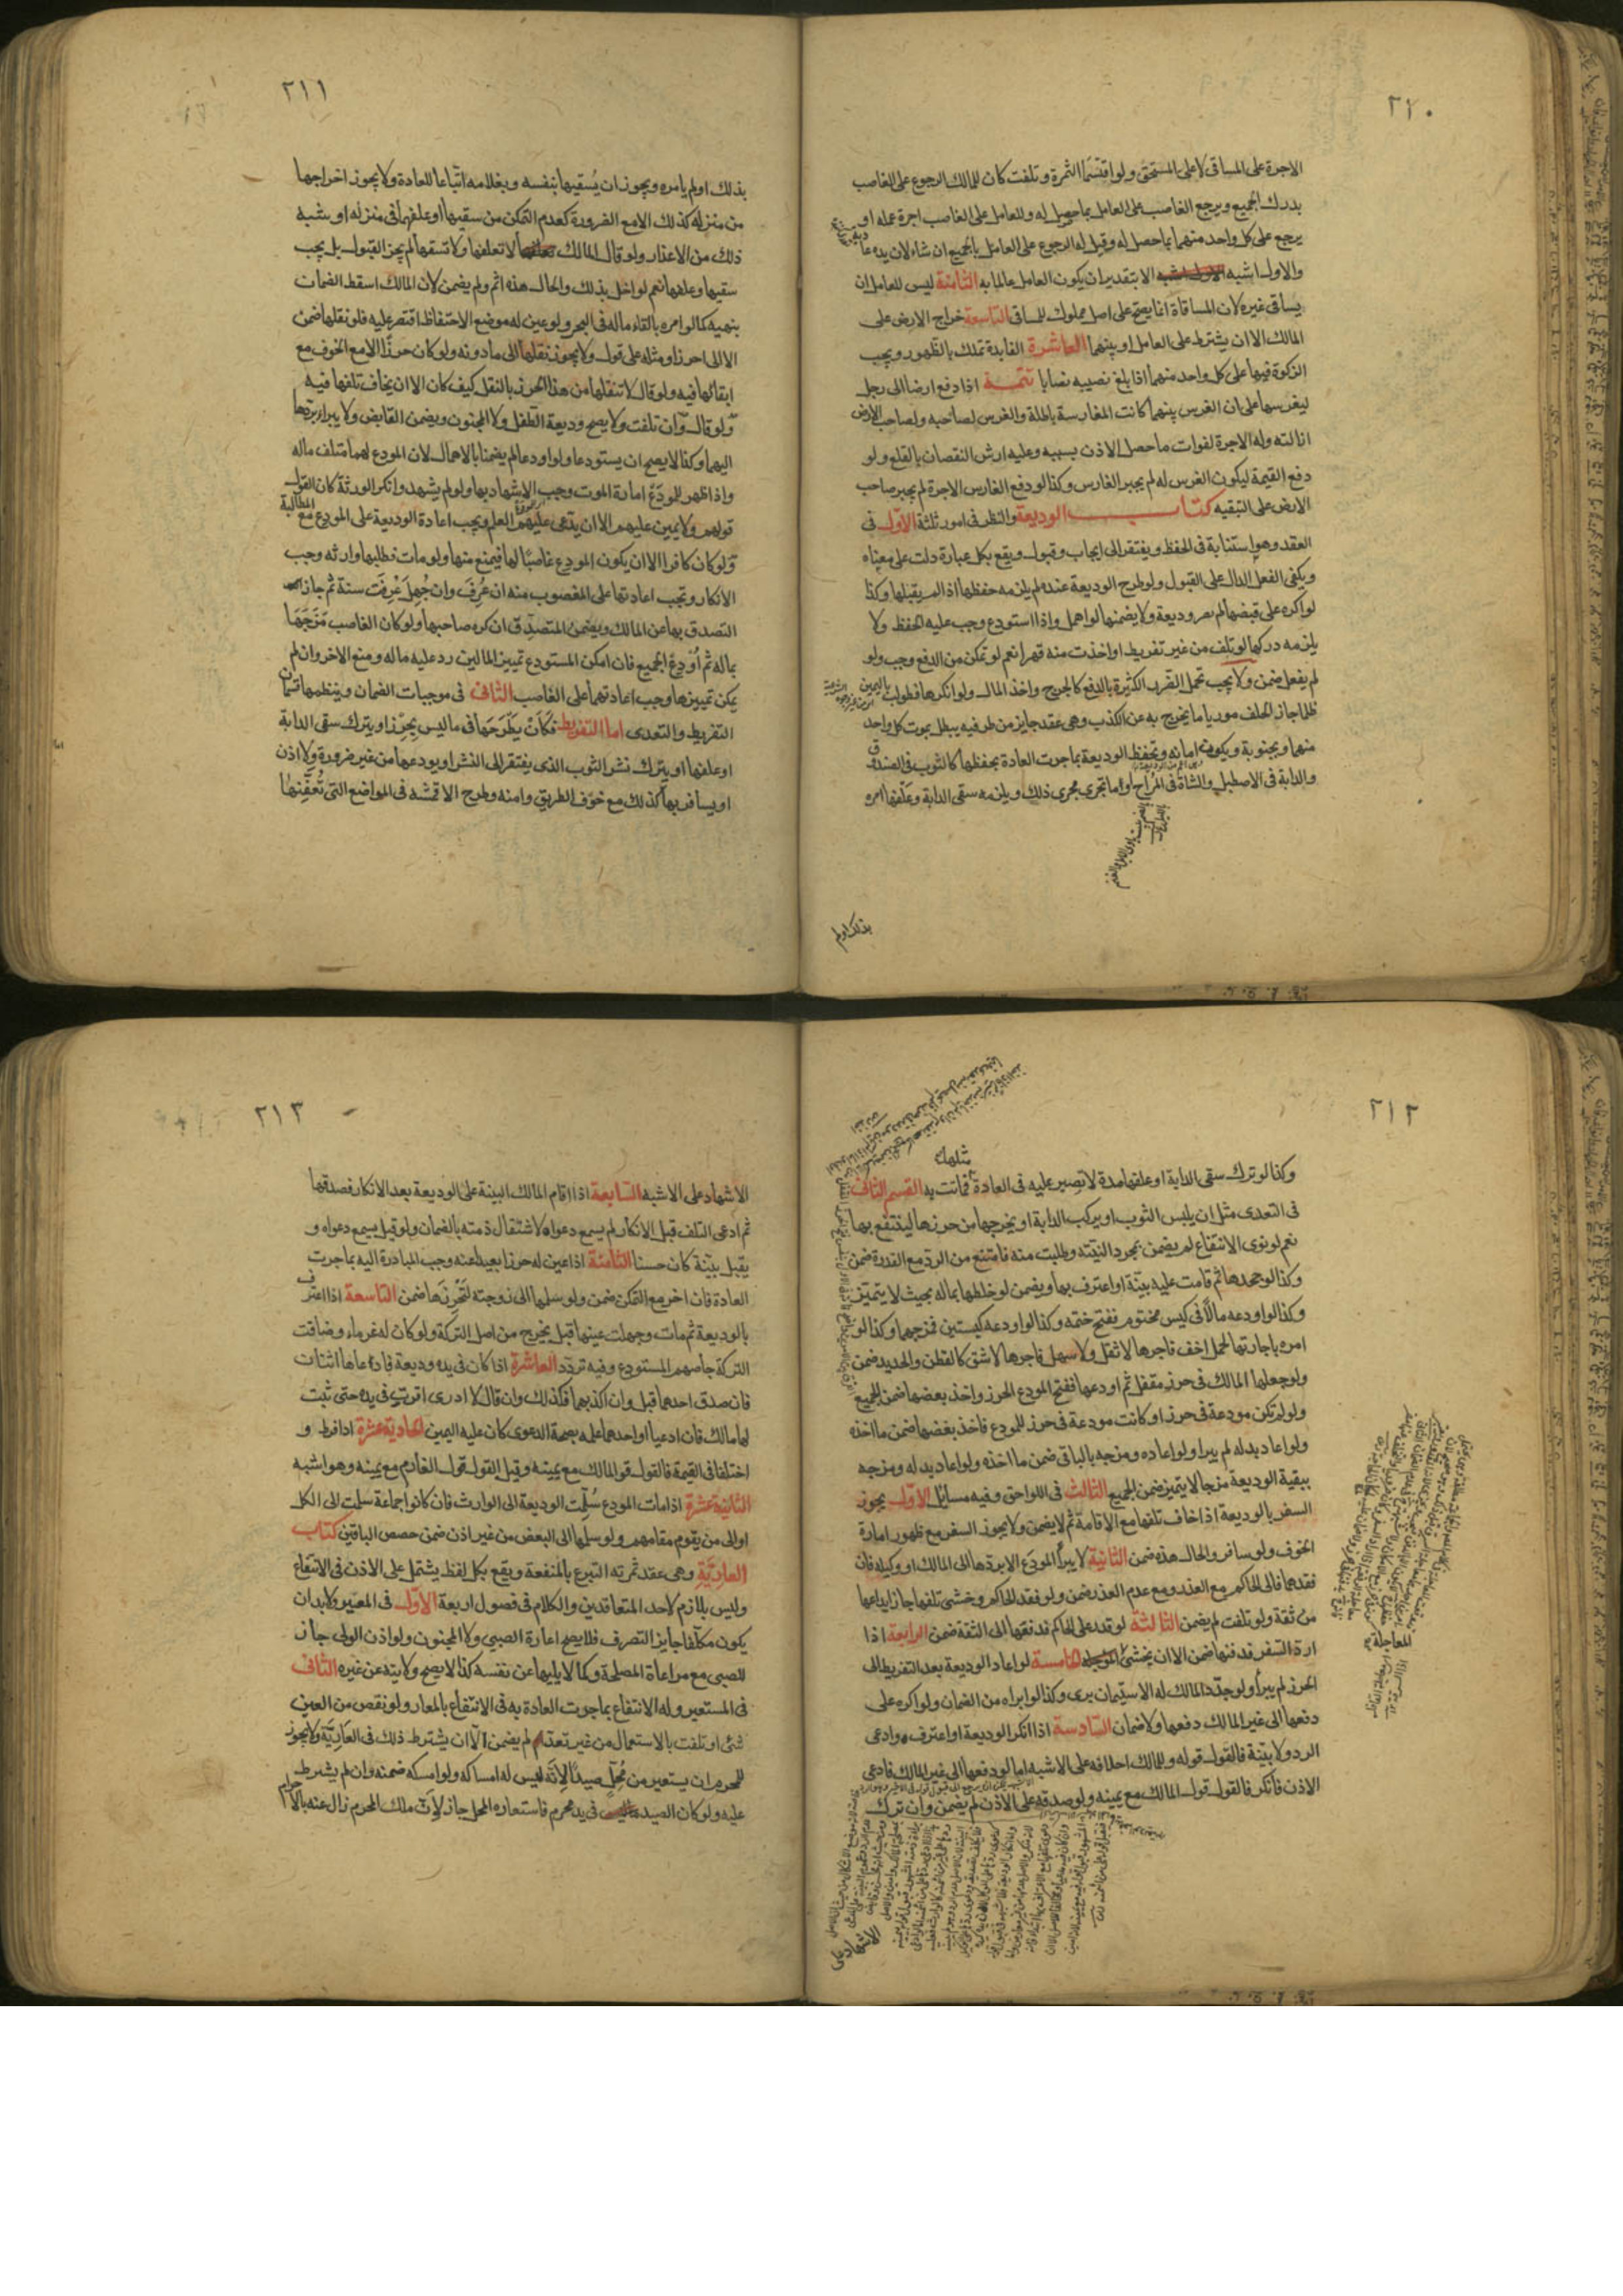 ٢١٠
الاجرة على المساقى لا على المستحق ولو اقتسما الثمرة وتلفت كان للمالك الرجوع على الغاصب
بدرك الجميع ويرجع الغاصب على العامل بما حصل له وللعامل على الغاصب اجرة عمله او
يرجع على كل واحد منهما بما حصل له وقيل له الرجوع على العامل بالجميع ان شاء لان يده عادية
والاول اشبه الا بتقدير ان يكون العامل عالما به الثامنة ليس للعامل ان
يساقى غيره لان المساقاة انما يصح على اصل مملوك للمساقى التاسعة خراج الارض على
المالك الا ان يشترط على العامل او بينهما العاشرة الفايدة تملك بالظهور ويجب
الزكوة فيها على كل واحد منهما اذا بلغ نصيبه نصابا تتمة اذا دفع ارضا الى رجل
ليغرسها على ان الغرس بينهما كانت المغارسة باطلة والغرس لصاحبه ولصاحب الارض
ازالته وله الاجرة لفوات ما حصل الاذن بسببه وعليه ارش النقصان بالقلع ولو
دفع القيمة ليكون الغرس له لم يجبر الغارس وكذا لو دفع الغارس الاجرة لم يجبر صاحب
الارض على التبقيه كتاب الوديعة والنظر فى امور ثلثة الاول فى
العقد وهو استنابة فى الحفظ ويفتقر الى ايجاب وقبول ويقع بكل عبارة دلت على معناه
ويكفى الفعل الدال على القبول ولو طرح الوديعة عنده لم يلزمه حفظها اذا لم يقبلها وكذا
لو اكره على قبضها لم يصر وديعة ولا يضمنها لو اهمل واذا استودع وجب عليه الحفظ ولا
يلزمه دركها لو تلف من غير تفريط او اخذت منه قهرا نعم لو تمكن من الدفع وجب ولو
لم يفعل ضمن ولا يجب تحمل الضرر الكثيرة بالدفع كالجرح واخذ المال ولو انكرها فطولب باليمين
ظلما جاز الحلف موريا ما يخرج به عن الكذب وهى عقد جايز من طرفيه يبطل بموت كل واحد
منهما وبجنونه ويكون امانه وتحفظ الوديعة بما جرت العادة بحفظها كالثوب فى الصندوق
والدابة فى الاصطبل والشاة فى المراح او ما تجرى مجرى ذلك ويلزمه سقى الدابة وعلفها امره
بذلك اولم
٢١١
بذلك او لم يامره ويجوز ان يُسقيها بنفسه وبغلامه اتباعا للعادة ولا يجوز اخراجها
من منزله كذلك الا مع الضرورة كعدم التمكن من سقيها او علفها فى منزله او شبه
ذلك من الاعذار ولو قال المالك لا تعلفها ولا تسقها لم يجز القبول بل يجب
سقيها وعلفها نعم لو اخل بذلك والحال هذه اثم ولم يضمن لان المالك اسقط الضمان
بنهيه كما لو امره بالقاء ماله فى البحر ولو عين له موضع الاحتفاظ اقتصر عليه فلو نقلها ضمن
الا الى احرز او مثله على قول ولا يجوز نقلها الى ما دونه ولو كان حرزا الا مع الخوف مع
ابقائها فيه ولو قال لا تنقلها من هذا الحرز بالنقل كيف كان الا ان يخاف تلفها فيه
ولو قال وان تلفت ولا يصح وديعة الطفل ولا المجنون ويضمن القابض ولا يبرا بردها
اليهما وكذا لا يصح ان يستودعا ولو اودعا لم يضمنا بالاهمال لان المودع لهما متلف ماله
واذا ظهر للمودَع امارة الموت وجب الاشهاد بها ولو لم يشهد وانكر الورثة كان القول
قولهم ولا يمين عليهم الا ان يدعى عليهم العلم ويجب اعادة الوديعة على المودع مع المطالبة
ولو كان كافرا الا ان يكون المودع غاصبًا لها فيمنع منها ولو مات فطلبها وارثه وجب
الانكار وتجب اعادتها على المغصوب منه ان عُرِفَ وان جُهِلَ عُرِفَت سنة ثم جاز
التصدق بها عن المالك ويضمن المتصدِّق ان كره صاحبها ولو كان الغاصب مَزَجَهَا
بماله ثم اُودِعَ الجميع فان امكن المستودع تمييز المالين رد عليه ماله ومنع الاخر وان لم
يمكن تمييزها وجب اعادتهما على الغاصب الثانى فى موجبات الضمان وينظمها قسمان
التفريط والتعدى اما التفريط فكَاَنْ يَطْرَحَهَا فى ما ليس بِحِرْز او يترك سقى الدابة
او علفها او يترك نشر الثوب الذى يفتقر الى النشر او يودعها من غير ضرورة ولا اذن
او يسافر بها كذلك مع خوف الطريق وامنه وطرح الاقمشه فى المواضع التى تُعَفِّنها
٢١٢
وكذا لو ترك سقى الدابة او علفها مدة لا تصبر عليه فى العادة فماتت به القسم الثانى
مثلها
فى التعدى مثل ان يلبس الثوب او يركب الدابة او يخرجها من حرزها لينتفع بها
نعم لو نوى الانتفاع لم يضمن بمجرد النيّة ولو طلبت منه فامتنع من الرد مع القدرة ضمن
وكذا لو جحدها ثم قامت عليه بيّنة او اعترف بها ويضمن لو خلطها بماله بحيث لا يتميّز
وكذا لو اودعه مالاً فى كيس مختوم ففتح ختمه وكذا لو اودعه كيسين فمزجهما وكذا لو
امره باجارتها لحمل اخف فاجرها لاثقل ولاسهل فاجرها لاشق كالقطن والحديد ضمن
ولو جعلها المالك فى حرز مقفل ثم اودعها ففتح المودع الحرز واخذ بعضها ضمن الجميع
ولو لم تكن مودعة فى حرز او كانت مودعة فى حرز للمودع فاخذ بعضها ضمن ما اخذه
ولو اعاد بدله لم يبرا ولو اعاده ومزجه بالباقى ضمن ما اخذه ولو اعاد بدله ومزجه
ببقية الوديعة مزجا لا يتميز ضمن الجميع الثالث فى اللواحق وفيه مسائل الاول يجوز
السفر بالوديعة اذا خاف تلفها مع الاقامة ثم لا يضمن ولا يجوز السفر مع ظهور امارة
الخوف ولو سافر والحال هذه ضمن الثانية لا يبرأ المودَع الا بردها الى المالك او وكيله فان
فقدهما فالى الحاكم مع العذر ومع عدم العذر ضمن ولو فقد الحاكم وخشى تلفها جاز ايداعها
من ثقة ولو تلفت لم يضمن الثالثة لو قدر على الحاكم فدفعها الى الثقة ضمن الرابعة اذا
اراد السفر فدفنها ضمن الا ان يخشى الخامسة لو اعاد الوديعة بعد التفريط الى
المعاجلة
الحرز لم يبرأ ولو جدّد المالك له الاستيمان برى وكذا لو ابراه من الضمان ولو اكره على
دفعها الى غير المالك دفعها ولا ضمان السّادسة اذا انكر الوديعة او اعترف وادعى
الرد ولا بيّنة فالقول قوله وللمالك احلافه على الاشبه اما لو دفعها الى غير المالك فادعى
الاذن فانكر فالقول قول المالك مع يمينه ولو صدقه على الاذن لم يضمن وان ترك
الاشهاد على
٢١٣
الاشهاد على الاشبه السّابعة اذا اقام المالك البينة على الوديعة بعد الانكار فصدقها
ثم ادعى التلف قبل الانكار لم يسمع دعواه لاشتغال ذمته بالضمان ولو قيل يسمع دعواه و
يقبل بيّنة كان حسنا الثامنة اذا عين له حرزا بعيدا عنه وجب المبادرة اليه بما جرت
العادة فان اخر مع التمكن ضمن ولو سلمها الى زوجته لتَحْرِزَها ضمن التاسعة اذا اعترف
بالوديعة ثم مات وجهلت عينها قيل يخرج من اصل التركة ولو كان له غرماء وضاقت
التركة حاصهم المستودع وفيه تردّد العاشرة اذا كان فى يده وديعة فادعاها اثنان
فان صدق احدهما قبل وان اكذبهما فكذلك وان قال لا ادرى اقرت فى يده حتى ثبت
لهما مالك فان ادعيا او احدهما علمه بصحة الدعوى كان عليه اليمين الحادية عشرة اذا فرط و
اختلفا فى القيمة فالقول قول المالك مع يمينه وقيل القول قول الغارم مع يمينه وهو اشبه
الثانية عشرة اذا مات المودع سُلِّمت الوديعة الى الوارث فان كانوا جماعة سلمت الى الكل
او الى من يقوم مقامهم ولو سلمها الى البعض من غير اذن ضمن حصص الباقين كتاب
العاريَّة وهى عقد ثمرته التبرع بالمنفعة ويقع بكل لفظ يشتمل على الاذن فى الانتفاع
وليس بلازم لاحد المتعاقدين والكلام فى فصول اربعة الاول فى المعير ولا بد ان
يكون مكلفا جايز التصرف فلا يصح اعارة الصبى ولا المجنون ولو اذن الولى جاز
للصبى مع مراعاة المصلحة وكما لا يليها عن نفسه كذا لا يصح ولايته عن غيره الثانى
فى المستعير وله الانتفاع بما جرت العادة به فى الانتفاع بالمعار ولو نقص من العين
شئ او تلفت بالاستعمال من غير تعد لم يضمن الّا ان يشترط ذلك فى العَارِيَّة ولا يجوز
للمحرم ان يستعير من مُحِلّ صيدًا لانّه ليس له امساكه ولو امسكه ضمنه وان لم يشترط
عليه ولو كان الصيد فى يد محرم فاستعاره المحل جاز لانّ ملك المحرم زال عنه بالاحرام